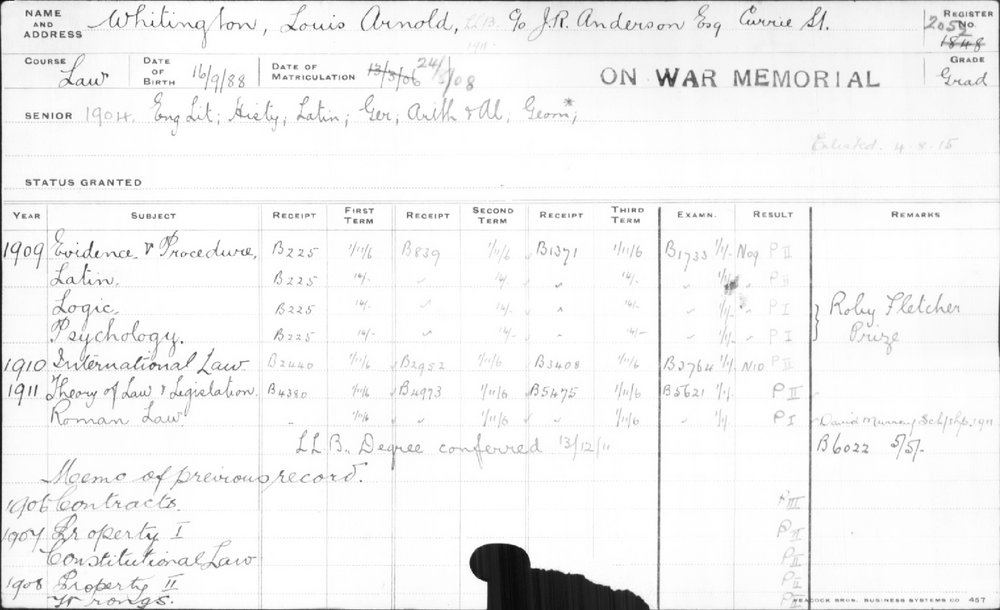 NAME AND ADDRESS Whitington, Louis Arnold, LL.B. c/o J.R. Anderson Esq Currie St. REGISTER NO. 2052 1848
1911
COURSE Law DATE OF BIRTH 16/9/88 DATE OF MATRICULATION 13/3/06 24/ /08 ON WAR MEMORIAL GRADE Grad
SENIOR 1904. Eng Lit; Histy; Latin; Ger; Arith & Al; Geom*;
Enlisted. 4.8.15
STATUS GRANTED
YEAR SUBJECT RECEIPT FIRST TERM RECEIPT SECOND TERM RECEIPT THIRD TERM EXAMN. RESULT REMARKS
1909 Evidence & Procedure, B225 1/11/6 B839 1/11/6 B1371 1/11/6 B1733 1/1/- N09 P II
Latin, B225 14/- " 14/- " 14/- " 1/1/- " P II
Logic, B225 14/- " 14/- " 14/- " 1/1/- " P I } Roby Fletcher
Psychology. B225 14/- " 14/- " 14/- " 1/1/- " P I Prize
1910 International Law B2440 1/11/6 B2952 1/11/6 B3408 1/11/6 B3764 1/1/- N10 P II
1911 Theory of Law & Legislation. B4380 1/11/6 B4973 1/11/6 B5475 1/11/6 B5621 1/1/- P II
Roman Law. " 1/11/6 " 1/11/6 " 1/11/6 " 1/1/ P I David Murray Schlshp. 1911
LL.B. Degree conferred 13/12/11 B6022 5/5/-
Memo of previous record.
1906 Contracts. P III
1907 Property I P II
Constitutional Law P II
1908 Property II P II
Wrongs. P
PEACOCK BROS. BUSINESS SYSTEMS CO 457